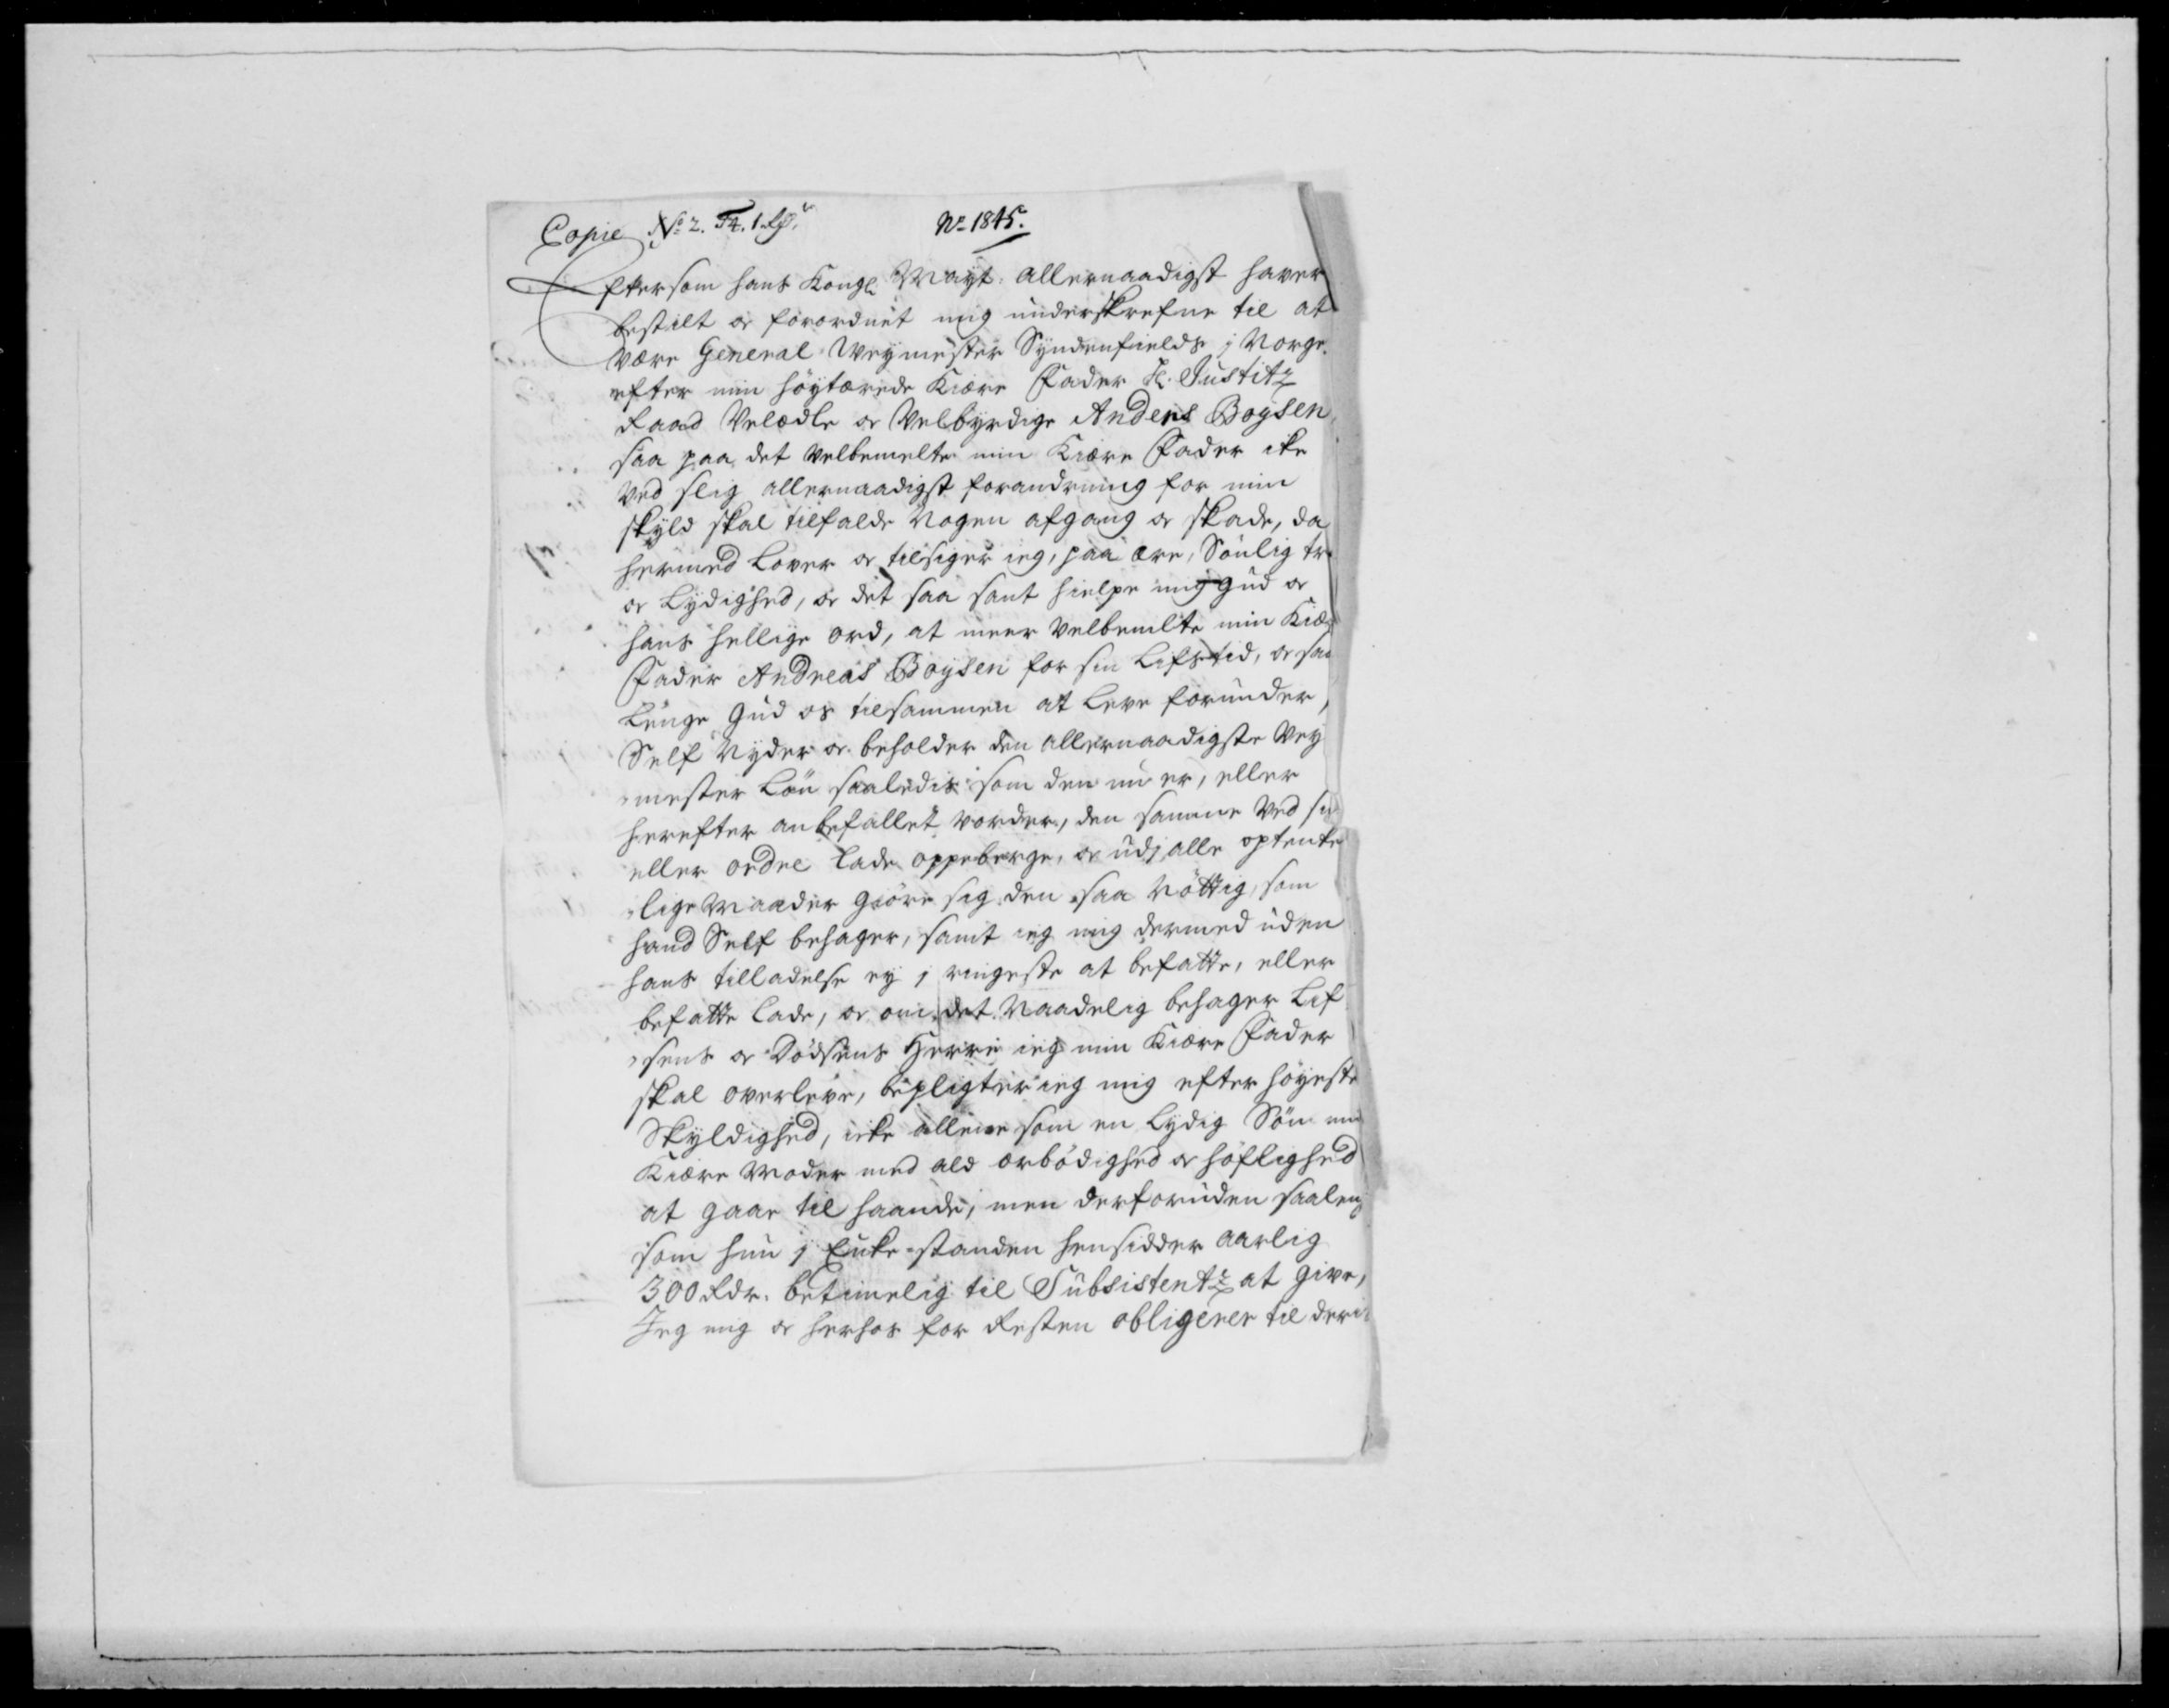 Copie No 2. 
No 1815.
Eftersom hans Kongl Mayt. allernaadigst haver
bestilt oc forordnet mig underskrefne til at
være General Weymester Syndenfields i Norge
efter min höytærede Kiære Fader H. Justitz
Raad Velædle oc Velbyrdige Anders Boysen
saa paa det velbemelte min Kiære Fader ike
ved slig allernaadigst forandring for min
skyld skal tilfalde nogen afgang oc skade, da
hermed lover oc tilsiger ieg, paa ære, Sönlig tr
oc Lydighed, oc det saa sant hielpe mig Gud oc
hans hellige ord, at meer velbemelte min Kiæ
Fader Andreas Boysen for sin Lifs tid, oc saa
Lenge Gud os tilsammen at leve forunder,
Self nyder oc beholder den allernaadigste Vey
mester Lön saaledis som den nu er, eller
herefter anbefallet vorder, den samme ved sig
eller ordre lade oppeberge, oc udj alle optenke
lige Maader giöre sig den saa nöttig, som
hand Self behager, samt ieg mig dermed uden
hans tilladelse ey i ringeste at befatte, eller
befatte lade, oc om det Naadelig behager Lif
sens oc Dödsens Herre ieg min Kiære Fader
skal overleve, bepligter ieg mig efter höyeste
Skyldighed, icke allene som en Lydig Sön min
Kiære Moder med ald ærbödighed oc höflighed
at gaae til haande, men derforuden saaleng
som hun i Enke-standen hensidder aarlig
300 Rdr. betimelig til Subsistentz at give,
Jeg mig oc herhos for Resten obligerer til deri